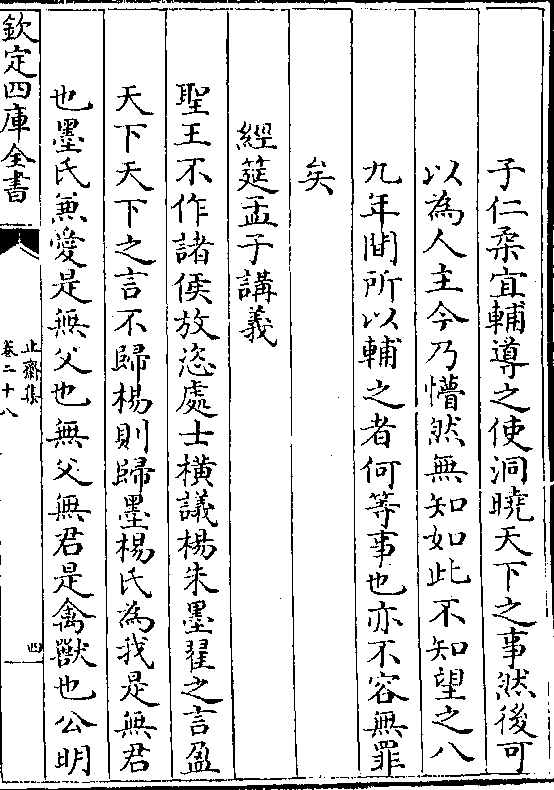 子仁柔宜輔導之使洞曉天下之事然後可
以為人主今乃懵然無知如此不知望之八
九年間所以輔之者何等事也亦不容無罪
矣
經筵孟子講義
聖王不作諸侯放恣處士橫議楊朱墨翟之言盈
天下天下之言不歸楊則歸墨楊氏為我是無君
也墨氏兼愛是無父也無父無君是禽獸也公明
欽定四庫全書
止齋集
卷二十八
四